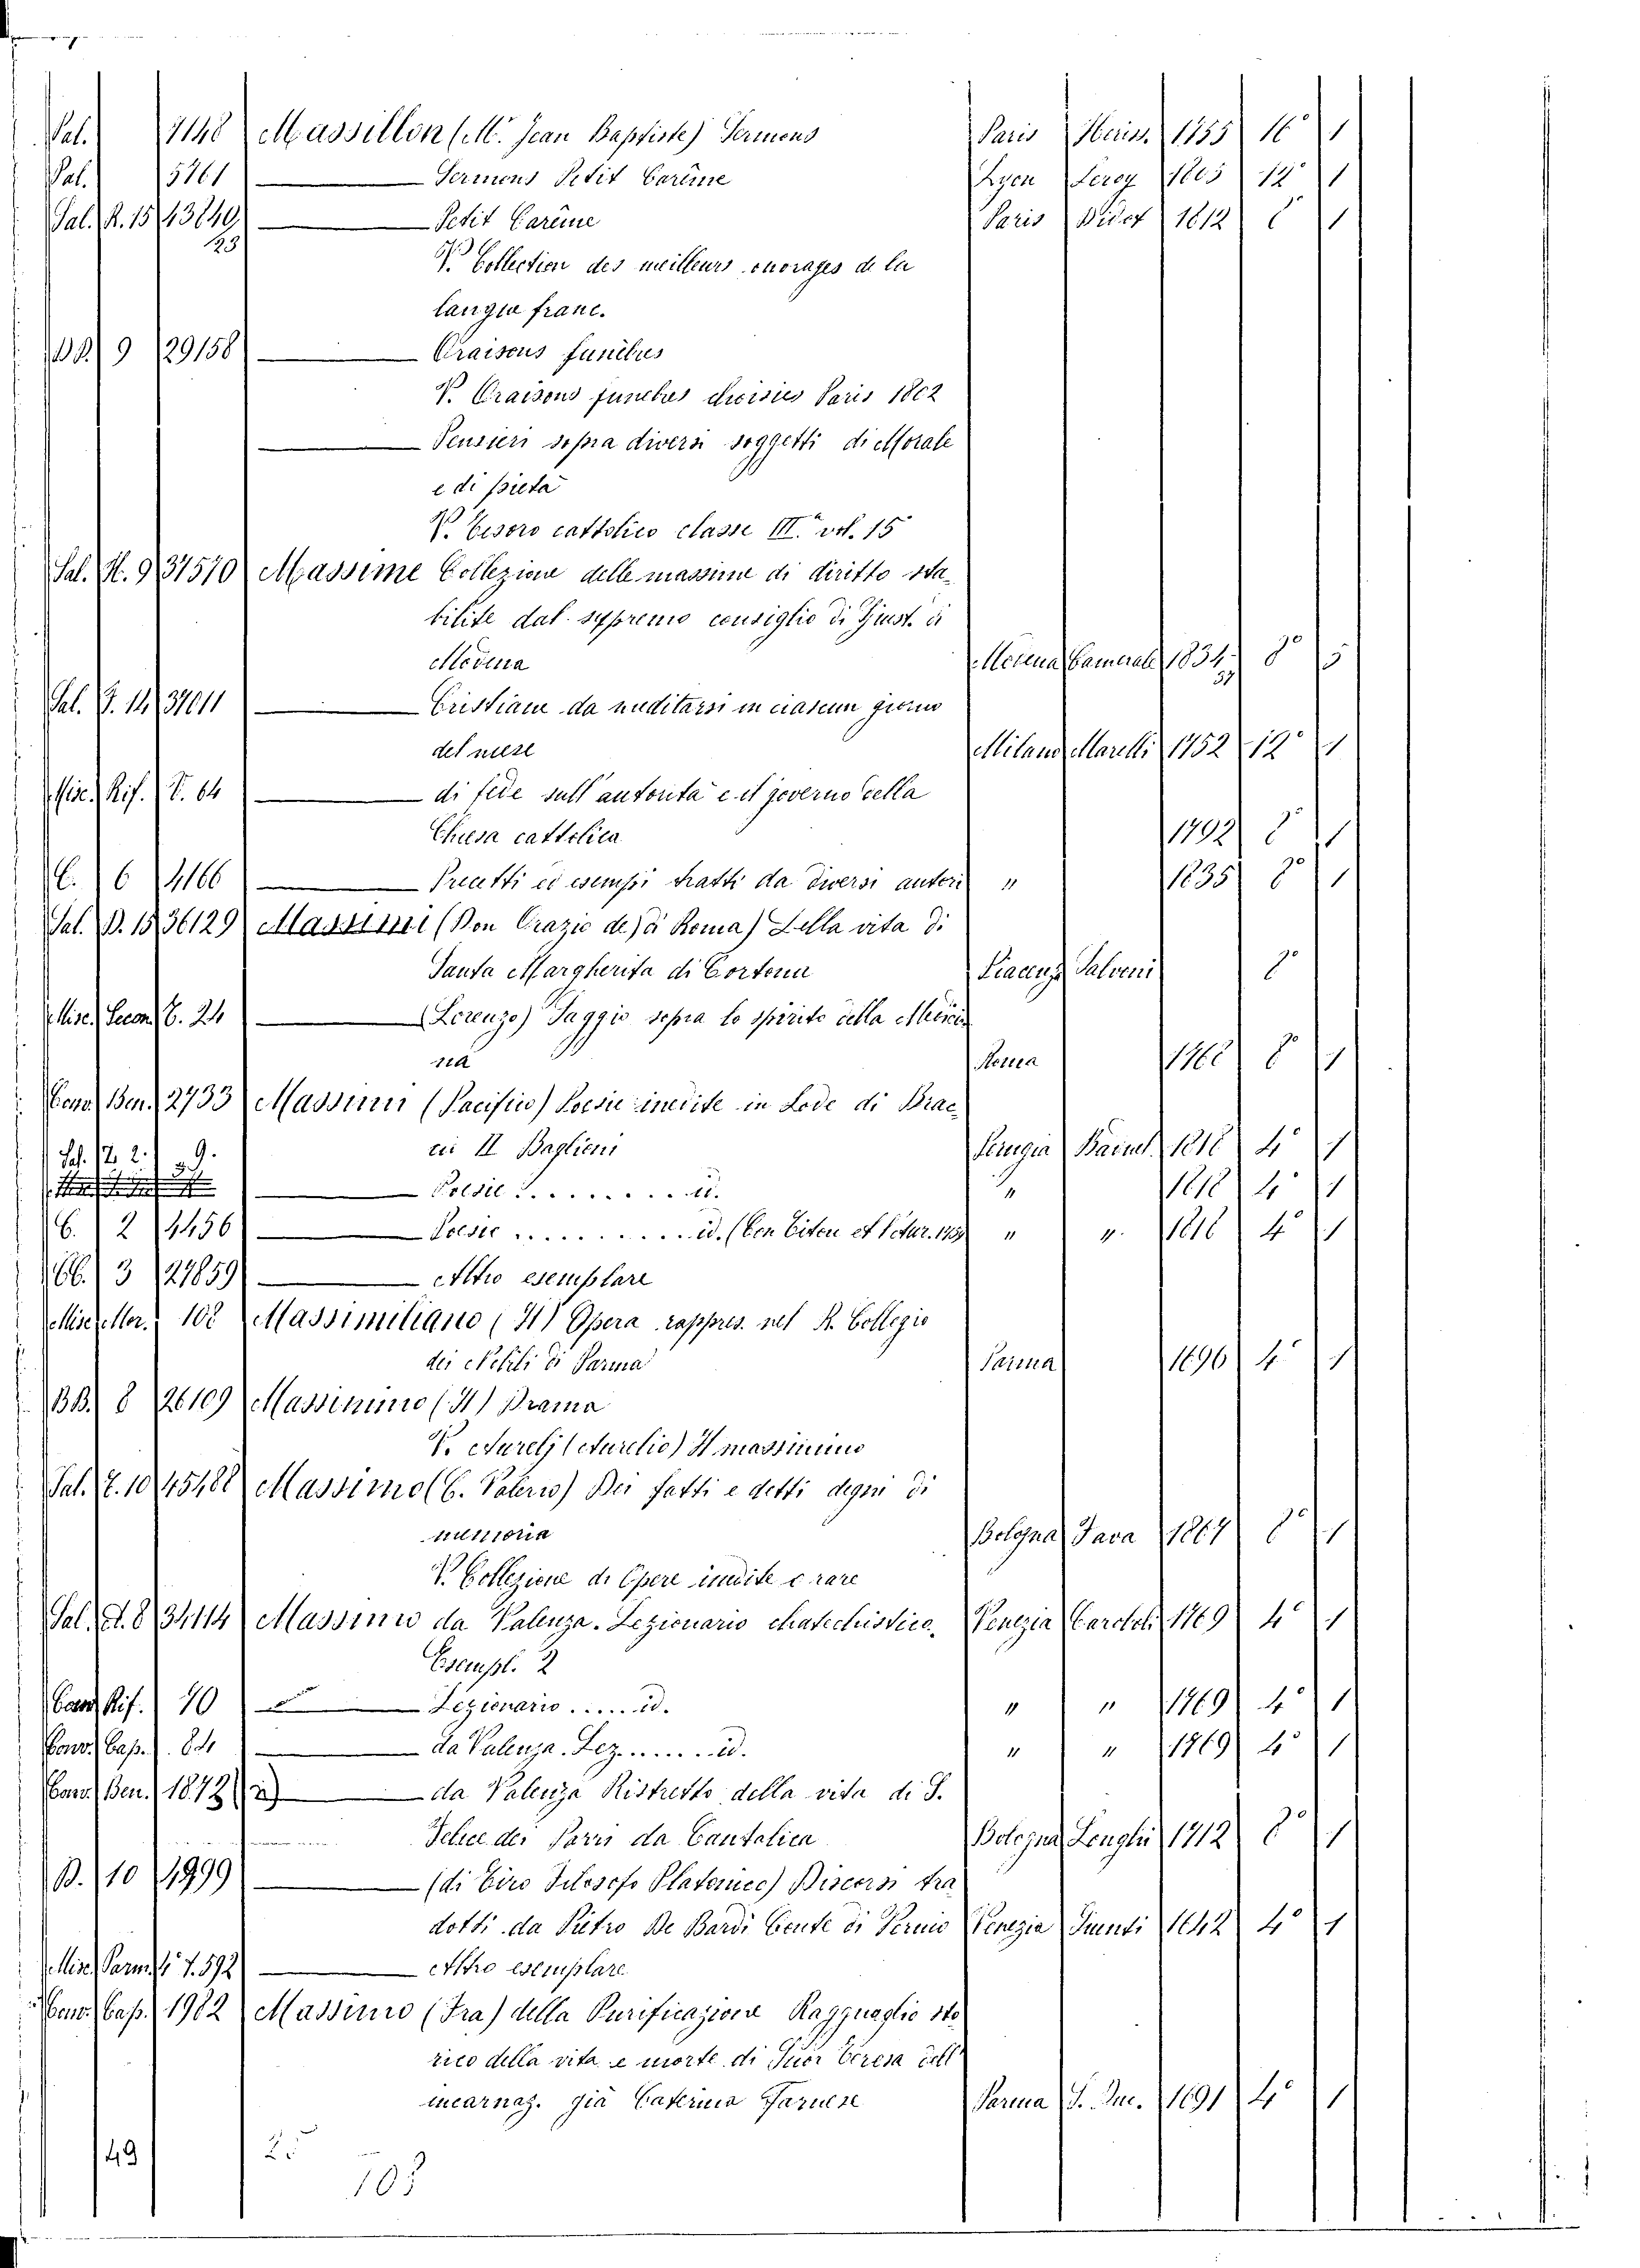 Pal. 7148 Massillon (M. Jean Baptiste) Sermons Paris Heriss. 1755 16 1
Pal. 5761 Sermons Petit Carême Lyon Leroy 1805 12° 1
Sal. R. 15 43849 Petit Carême Paris Didot 1812 8 1
23
V. Collection des meilleurs ouvrages de la
langue franc.
DD. 9 29158 Oraisons funébres
V. Oraisons funebres choisies Paris 1802
Pensieri sopra diversi soggetti di Morale
e di pietà
V. Tesoro cattolico classe III.ª vol. 15
Sal. M. 9 37570 Massime Collezione delle massime di diritto sta-
bilite dal supremo consiglio di Giust. di
Modena Modena Camerale 1834 8° 5
37
Sal. P. 14 37011 Cristiane da meditarsi in ciascun giorno
del mese Milano Marelli 1752 12° 1
Misc. Rif. T. 64 di fede sull'autorità e il governo della
Chiesa cattolica 1792 8 1
C. 6 4166 Precetti ed esempi tratti da diversi autori " 1835 8° 1
Sal. D. 15 36129 Massimi (Don Orazio de) di Roma) Della vita di
Santa Margherita di Cortona Piacenza Salvoni 8°
Misc. Secon. T. 24 (Lorenzo) Saggio sopra lo spirito della Medici-
na Roma 8 1
Conv. Ben. 2733 Massimi (Pacifico) Poesie inedite in Lode di Brac-
cio II Baglioni Perugia Bainel. 1818 4° 1
Sal. Z. 2. 9.
Poesie . . . . . . . . . id. " 1818 4° 1
C. 2 4456 Poesie . . . . . . . . . . id. " " 1818 4° 1
CC. 3 27859 Altro esemplare
Misc. Mor. 108 Massimiliano (Il) Opera rappres. nel R. Collegio
dei Nobili di Parma Parma 1696 4 1
BB. 8 26109 Massimino (Il) Drama
V. Aurelj (Aurelio) Il massimino
Sal. Z. 10 45488 Massimo (C. Valerio) Dei fatti e detti degni di
memoria Bologna Fava 1867 8° 1
V. Collezione di Opere inedite e rare
Sal. A. 8 34114 Massimo da Valenza. Lezionario chatechistico. Venezia 1769 4° 1
Esempl. 2
Conv. Rif. 70 Lezionario . . . . . id. " " 1769 4° 1
Conv. Cap. 84 da Valenza. Lez. . . . . . . id. " " 1769 4° 1
Conv. Ben. 1872 (2) da Valenza Ristretto della vita di S.
Felice dei Porri da Cantalica Bologna Longhi 1712 8° 1
B. 10 1999 (di Tiro Filosofo Platonico) Discorsi tra-
dotti da Pietro De Bardi Conte di Vernio Venezia Giunti 1642 4° 1
Misc. Parm. 4° T. 592 Altro esemplare
Conv. Cap. 1982 Massimo (Fra) della Purificazione Ragguaglio sto-
rico della vita e morte di Suor Teresa dell'
incarnaz. già Caterina Farnese Parma 1691 4° 1
49 25
103